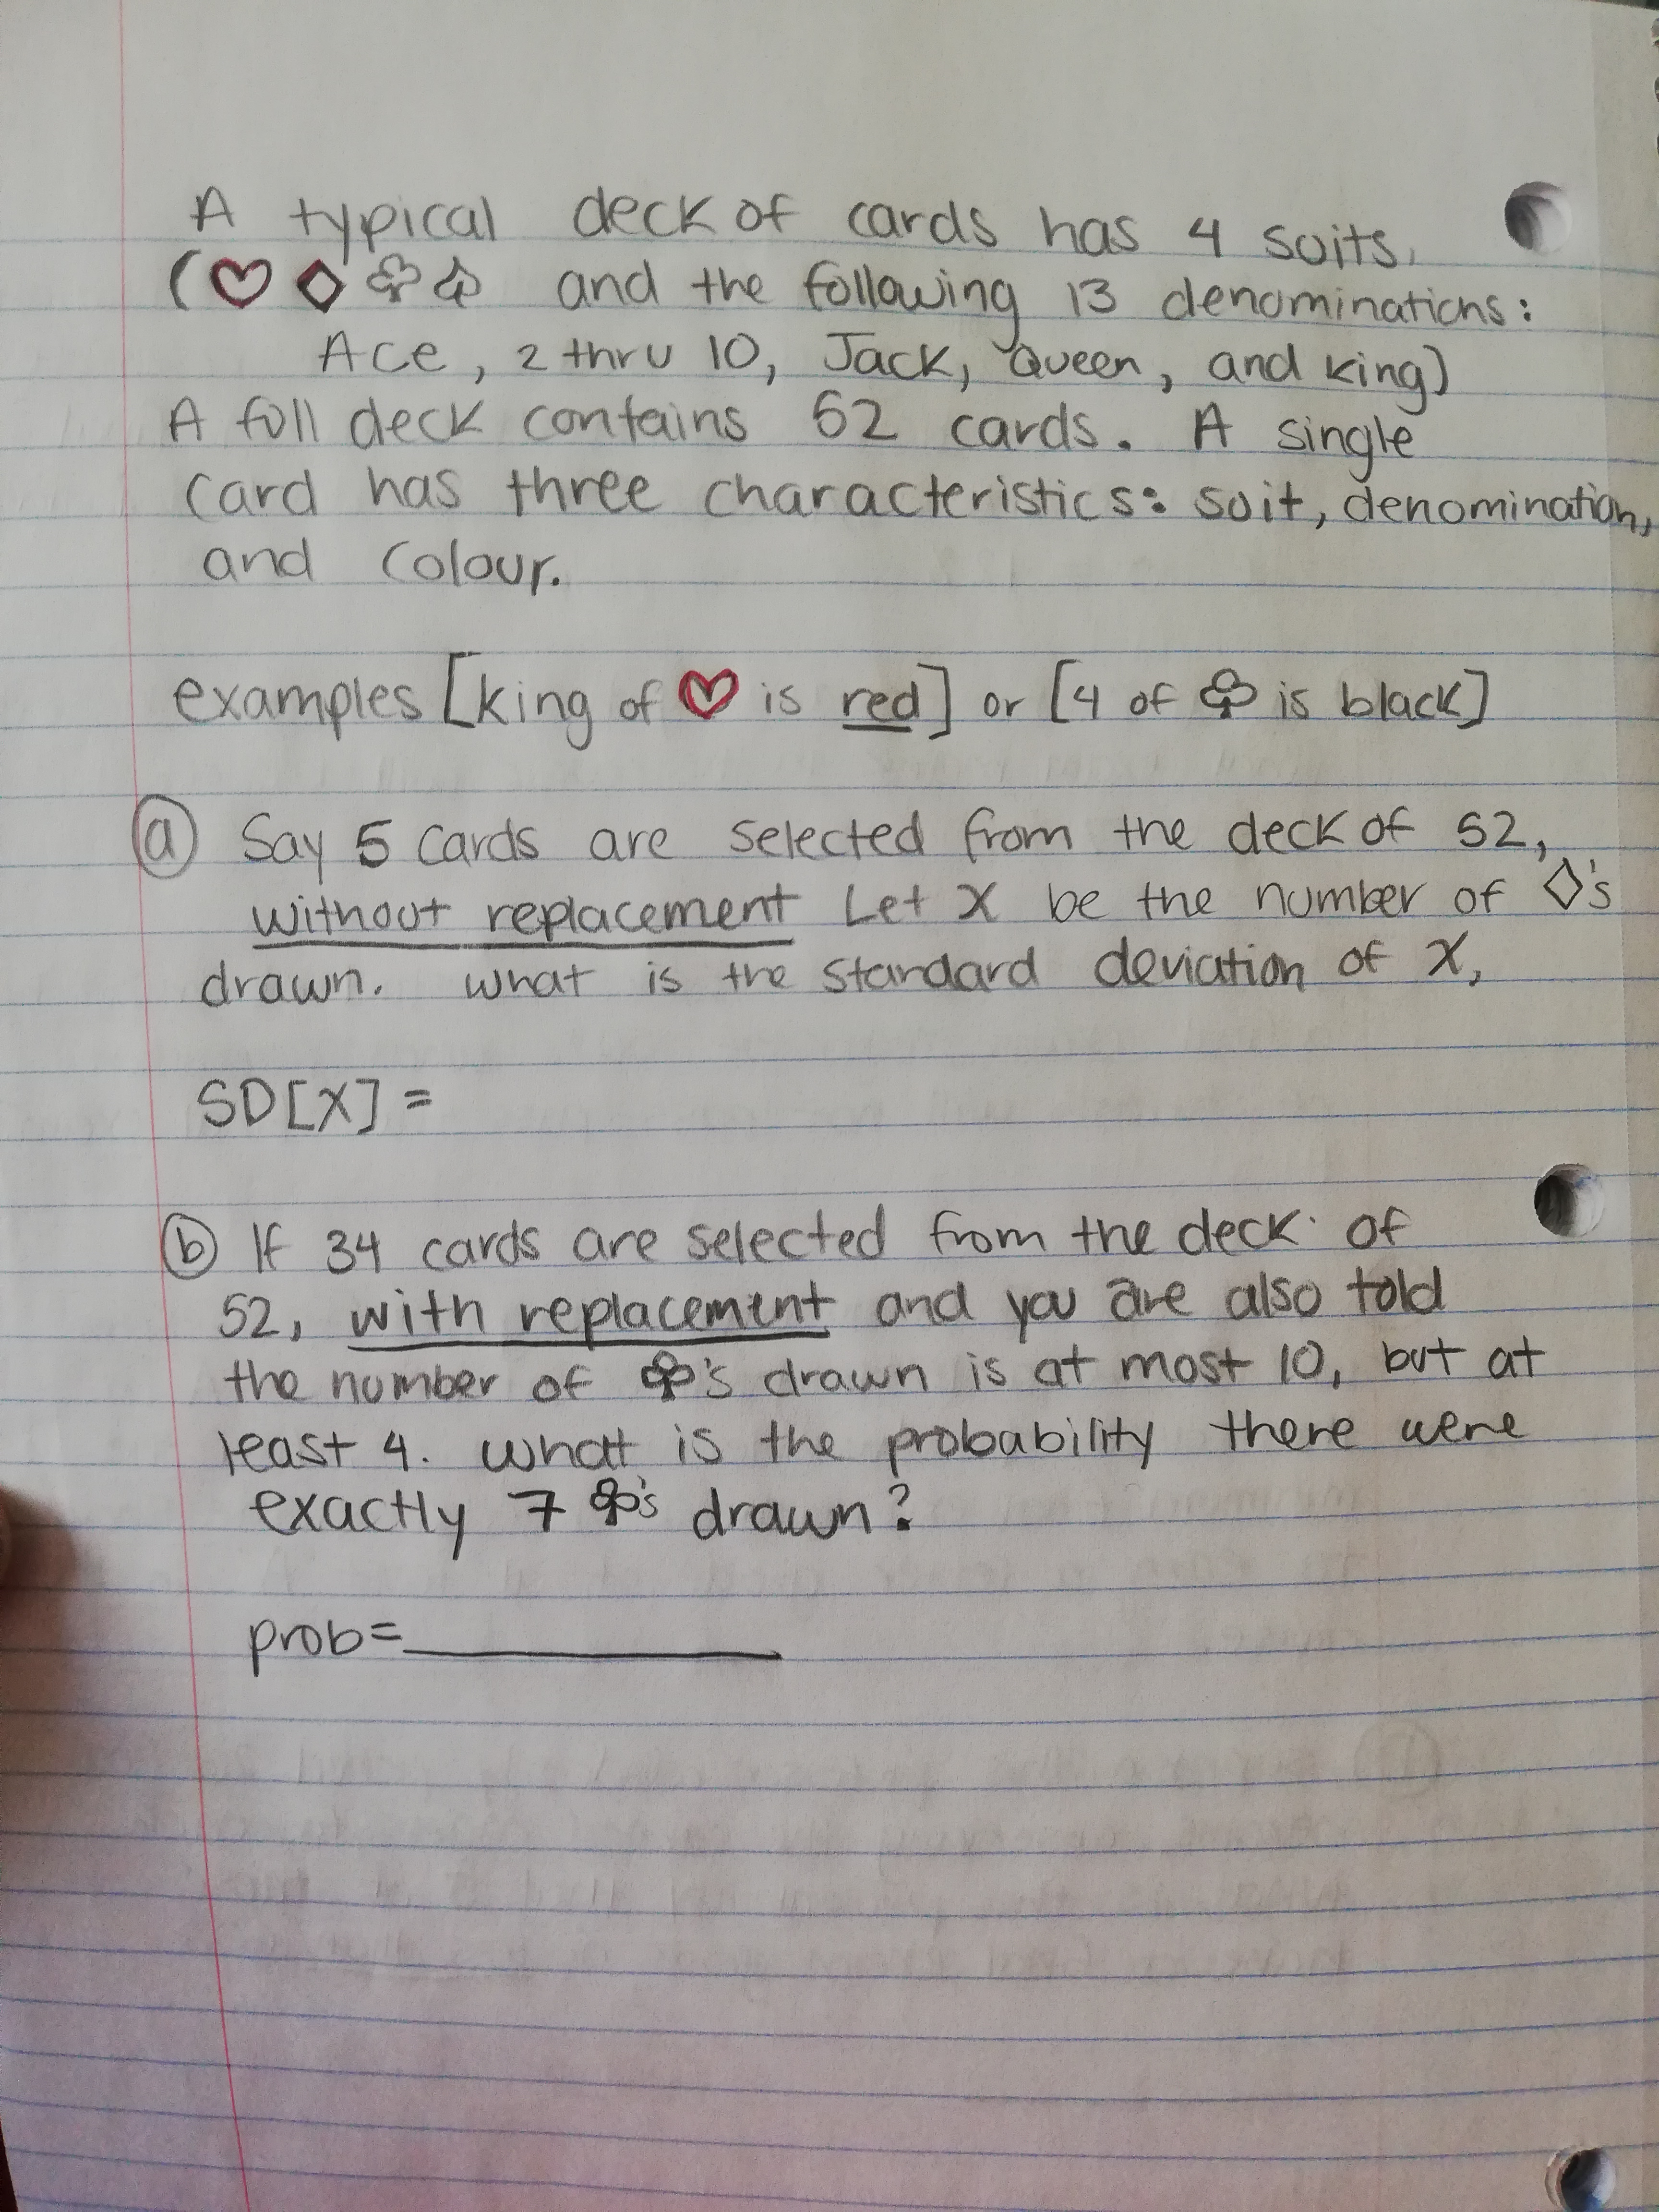 A typical deck of cards has 4 suits.
(♡ ◇ ♧ ♤ and the following 13 denominations:
Ace, 2 thru 10, Jack, Queen, and king)
A full deck contains 52 cards. A single
card has three characteristics: suit, denomination,
and colour.
examples [king of ♡ is red] or [4 of ♧ is black]
(a) Say 5 cards are selected from the deck of 52,
without replacement Let X be the number of ◇'s
drawn. what is the standard deviation of X,
SD[X] =
(b) If 34 cards are selected from the deck of
52, with replacement and you are also told
the number of ♧'s drawn is at most 10, but at
least 4. what is the probability there were
exactly 7 ♧'s drawn?
prob=